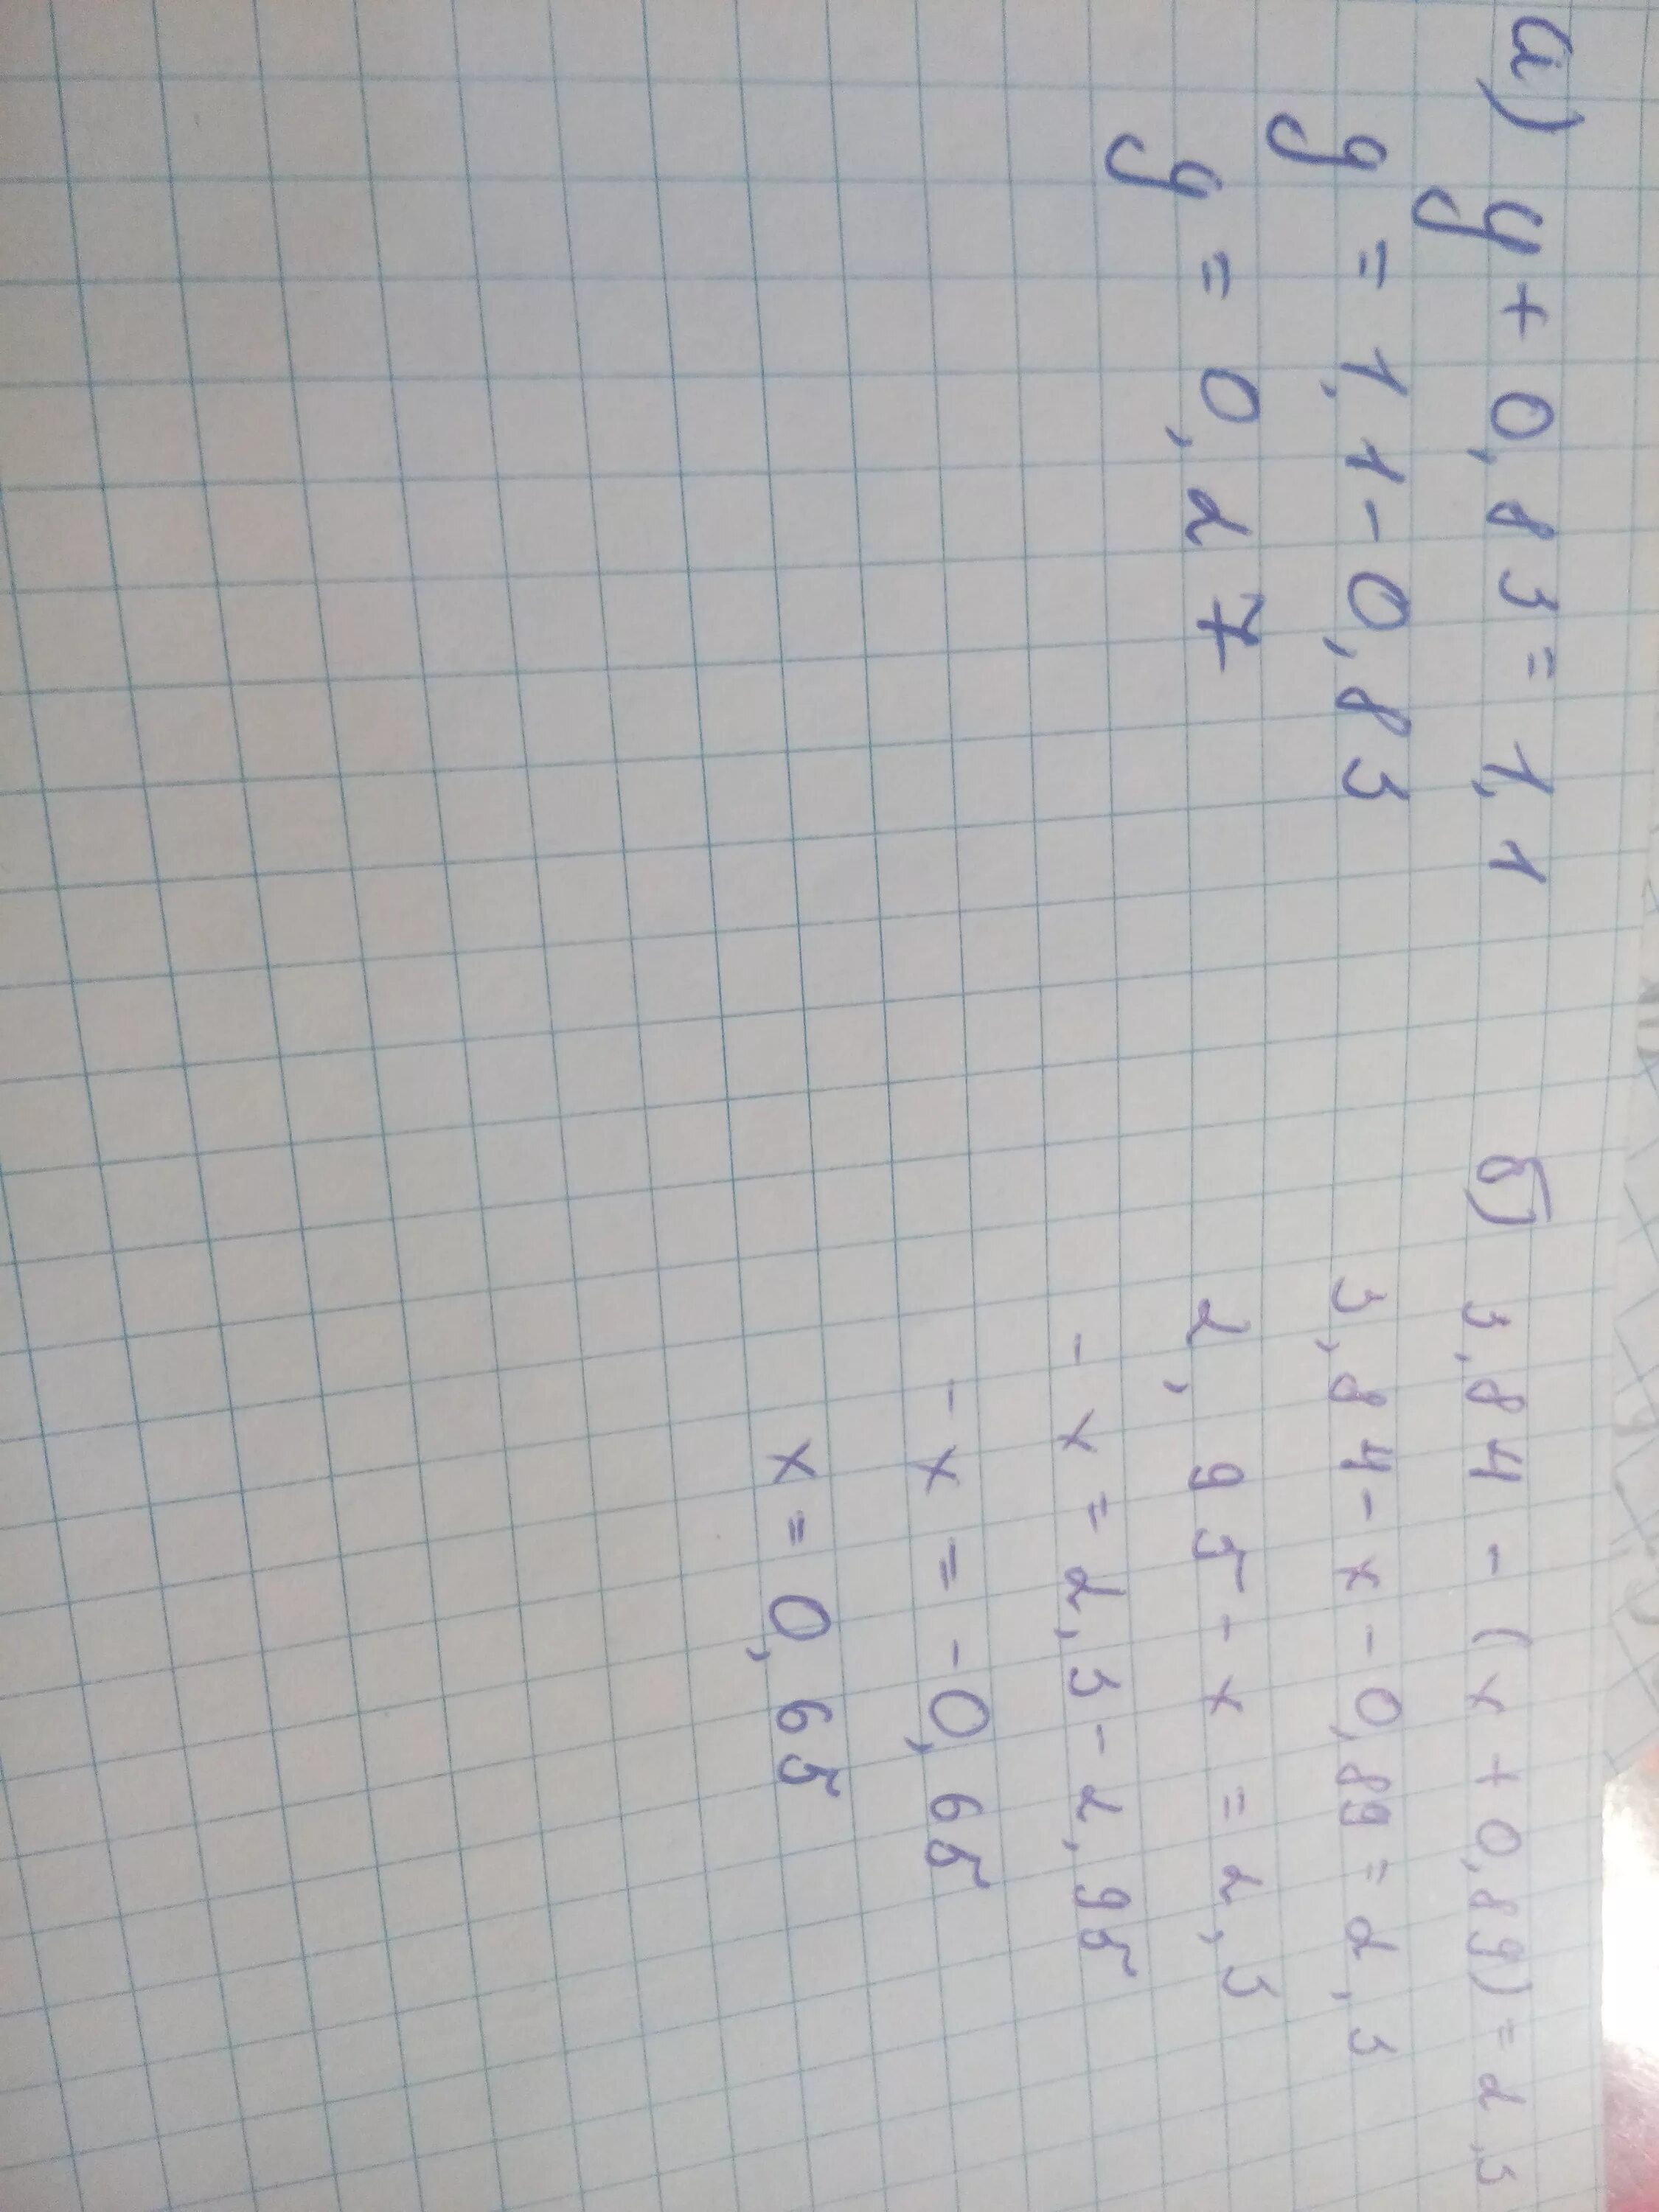 а) y + 0,83 = 1,1
y = 1,1 - 0,83
y = 0,27
б) 3,84 - (x + 0,89) = 2,3
3,84 - x - 0,89 = 2,3
2,95 - x = 2,3
- x = 2,3 - 2,95
- x = - 0,65
x = 0,65